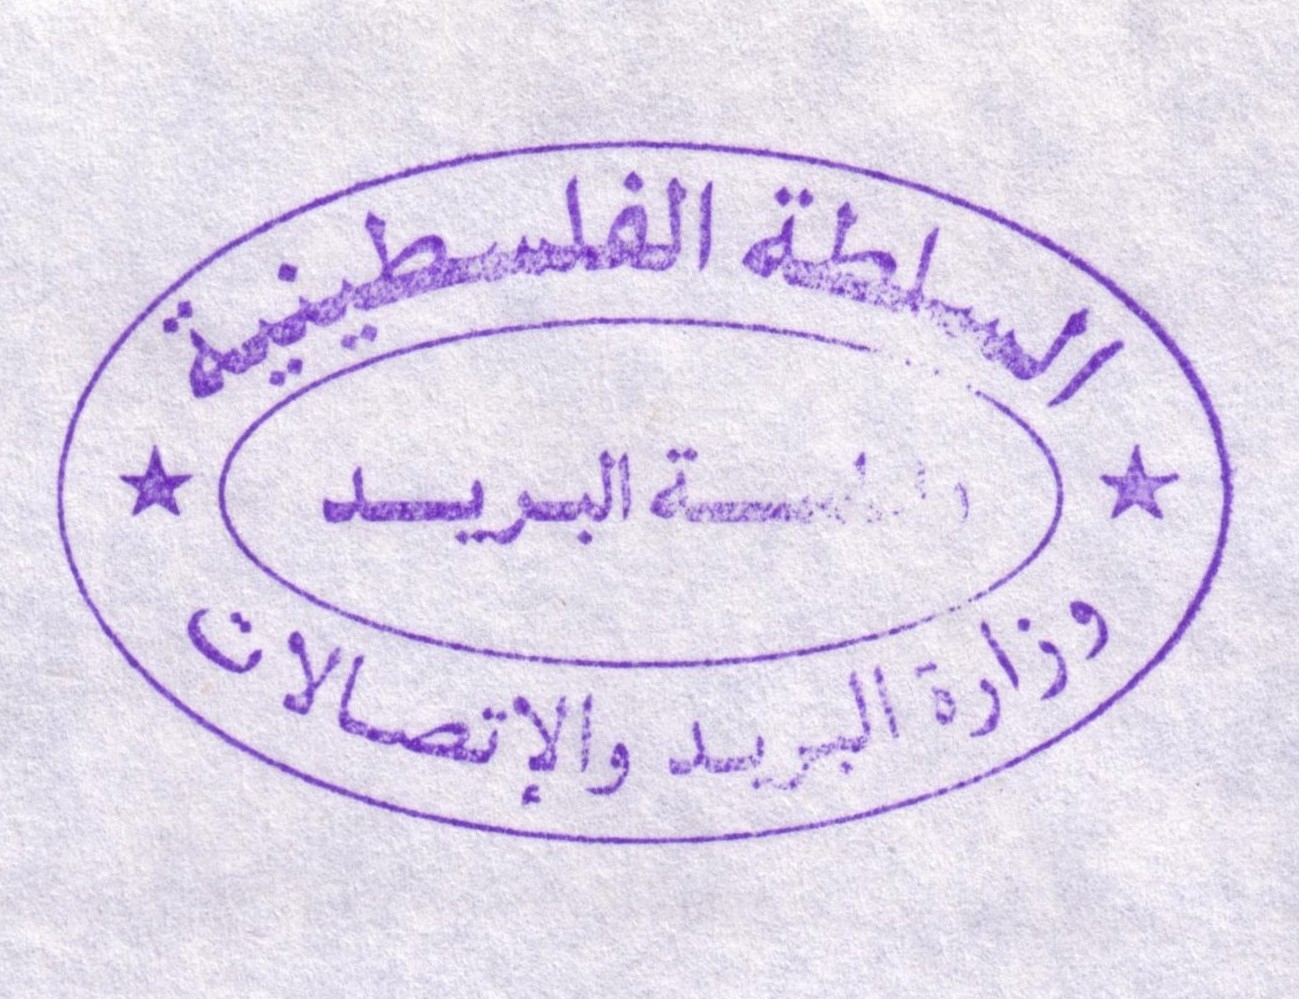 السلطة الفلسطينية
البريد
وزارة البريد والإتصالات